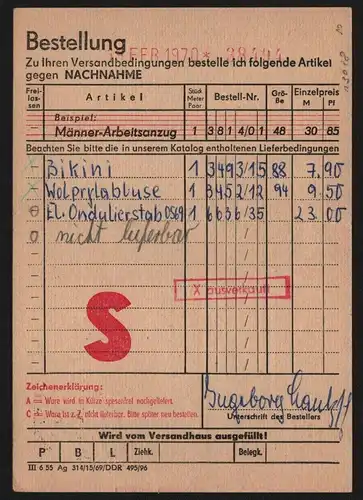 Bestellung FEB 1970* 38494
Zu Ihren Versandbedingungen bestelle ich folgende Artikel
gegen NACHNAHME
Frei-lassen Artikel Stück Meter Paar Bestell-Nr. Grö-ße Einzelpreis M Pf
Beispiel:
Männer-Arbeitsanzug 1 3 8 1 4/0 1 48 30 85
Beachten Sie bitte die in unserem Katalog enthaltenen Lieferbedingungen
Bikini 1 3493/15 88 7.90
1 3452/12 94 9.50
El. Ondulierstab 0569 1 6636/35 23.00
nicht lieferbar
X ausverkauft
S
Zeichenerklärung:
A = Ware wird in Kürze spesenfrei nachgeliefert.
C = Ware ist z. Z. nicht lieferbar. Bitte später neu bestellen.
Ingeborg
Unterschrift des Bestellers
Wird vom Versandhaus ausgefüllt!
P B L Ziehk. Belegk.
III 6 55 Ag 314/15/69/DDR 495/96